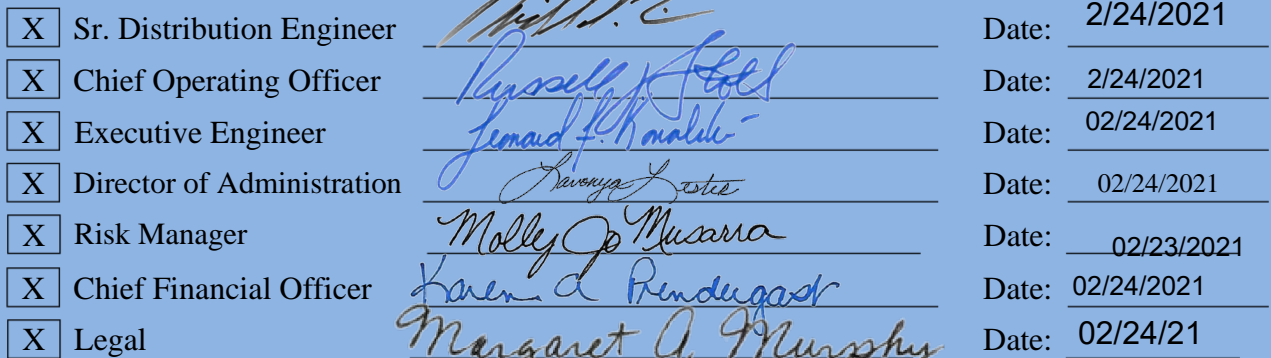 X Sr. Distribution Engineer Date: 2/24/2021
X Chief Operating Officer Russell J Stoll Date: 2/24/2021
X Executive Engineer Leonard F. Kowalski Date: 02/24/2021
X Director of Administration Lavonya Lester Date: 02/24/2021
X Risk Manager Molly Jo Musarra Date: 02/23/2021
X Chief Financial Officer Karen A Prendergast Date: 02/24/2021
X Legal Margaret A. Murphy Date: 02/24/21